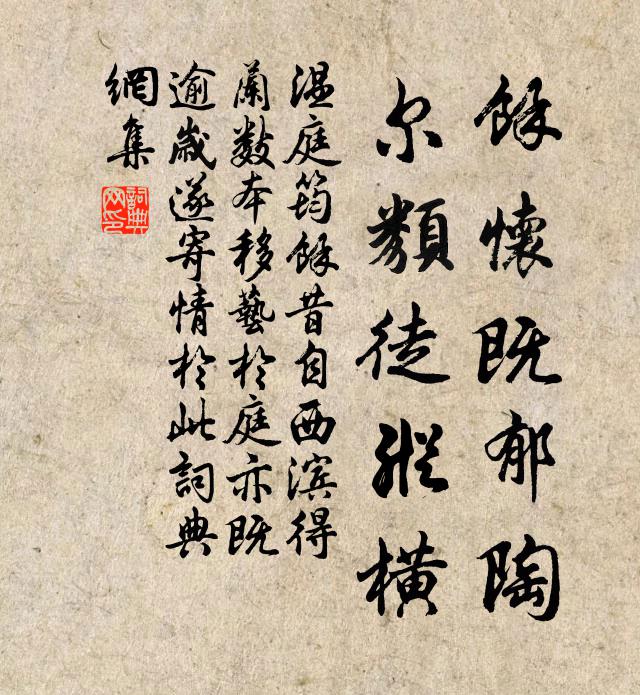 餘懷既郁陶
尔類徒縱橫
温庭筠餘昔自西滨得
蘭數本移藝於庭亦既
逾歲遂寄情於此詞典
網集
詞典網印